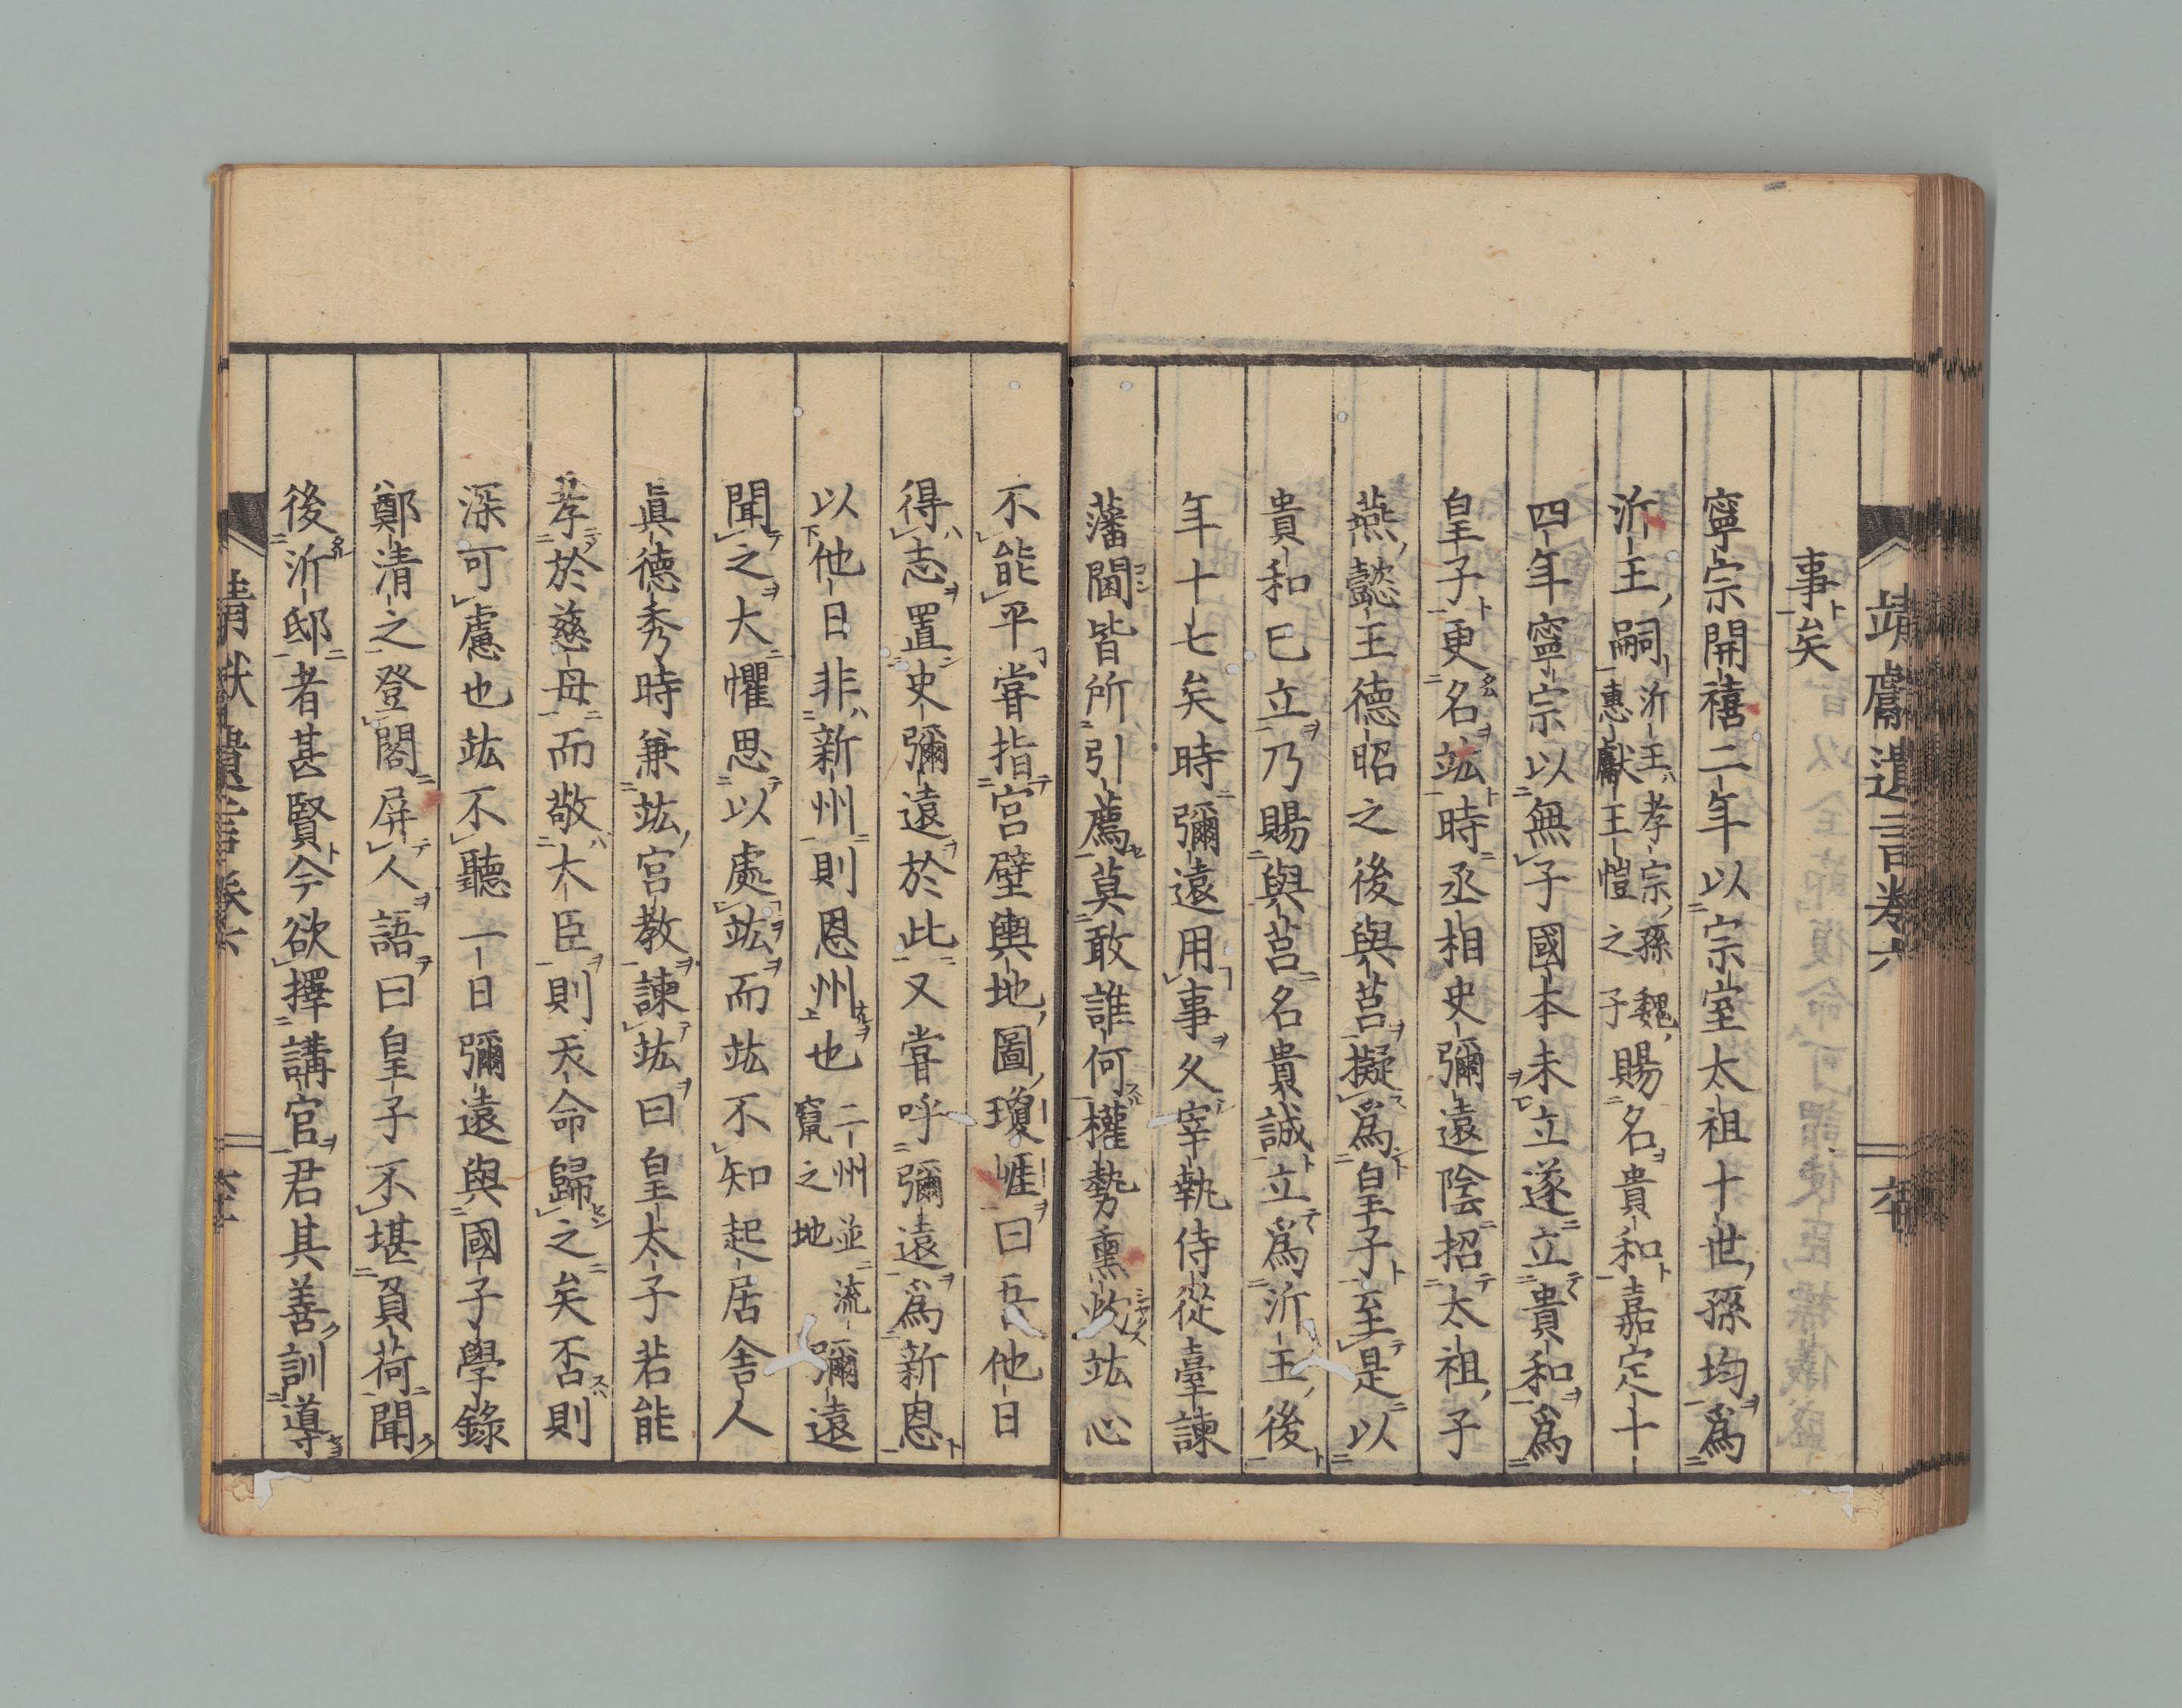 靖獻遺言卷六
事矣
寧宗開禧二年以宗室太祖十世孫均爲
沂王嗣沂王孝宗孫魏惠獻王愷之子賜名貴和嘉定十
四年寧宗以無子國本未立遂立貴和爲
皇子更名竑時丞相史彌遠陰招太祖子
燕懿王德昭之後與莒擬爲皇子至是以
貴和已立乃賜與莒名貴誠立爲沂王後
年十七矣時彌遠用事久宰執侍從臺諫
藩閫皆所引薦莫敢誰何權勢熏灼竑心
不能平嘗指宮壁輿地圖瓊崖曰吾他日
得志置史彌遠於此又嘗呼彌遠爲新恩
以他日非新州則恩州也二州並流竄之地彌遠
聞之大懼思以處竑而竑不知起居舍人
眞德秀時兼竑宮教諫竑曰皇太子若能
孝於慈母而敬大臣則天命歸之矣否則
深可慮也竑不聽一日彌遠與國子學錄
鄭清之登閣屏人語曰皇子不堪負荷聞
後沂邸者甚賢今欲擇講官君其善訓導